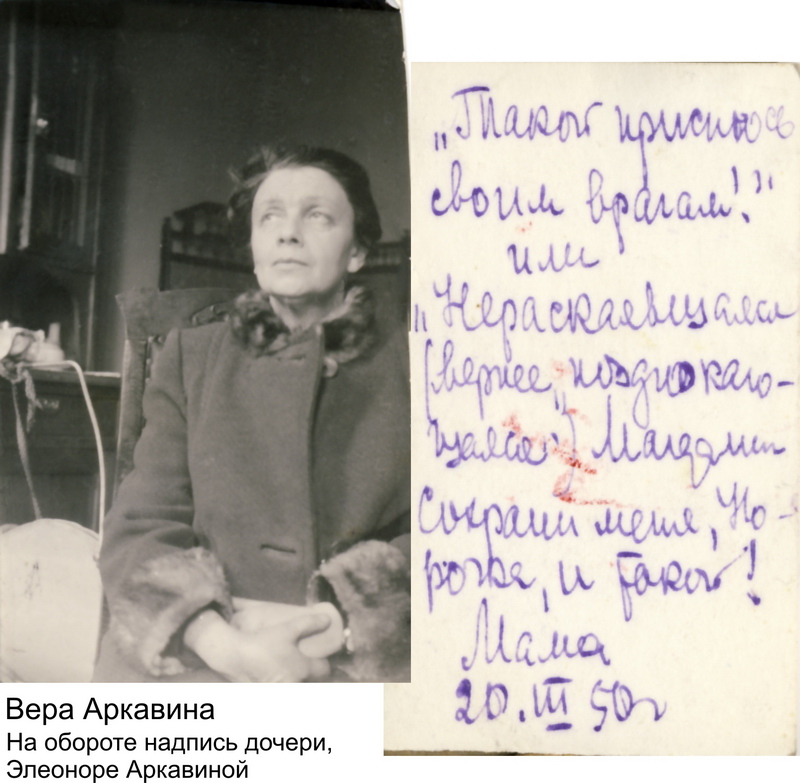 „Такой приснюсь
своим врагам!”
или
„Нераскаявшаяся
(вернее, „позднокаю-
щаяся”) Магдалина
Сохрани меня, Но-
рочка, и такой!
Мама
20.III 50г
Вера Аркавина
На обороте надпись дочери,
Элеоноре Аркавиной